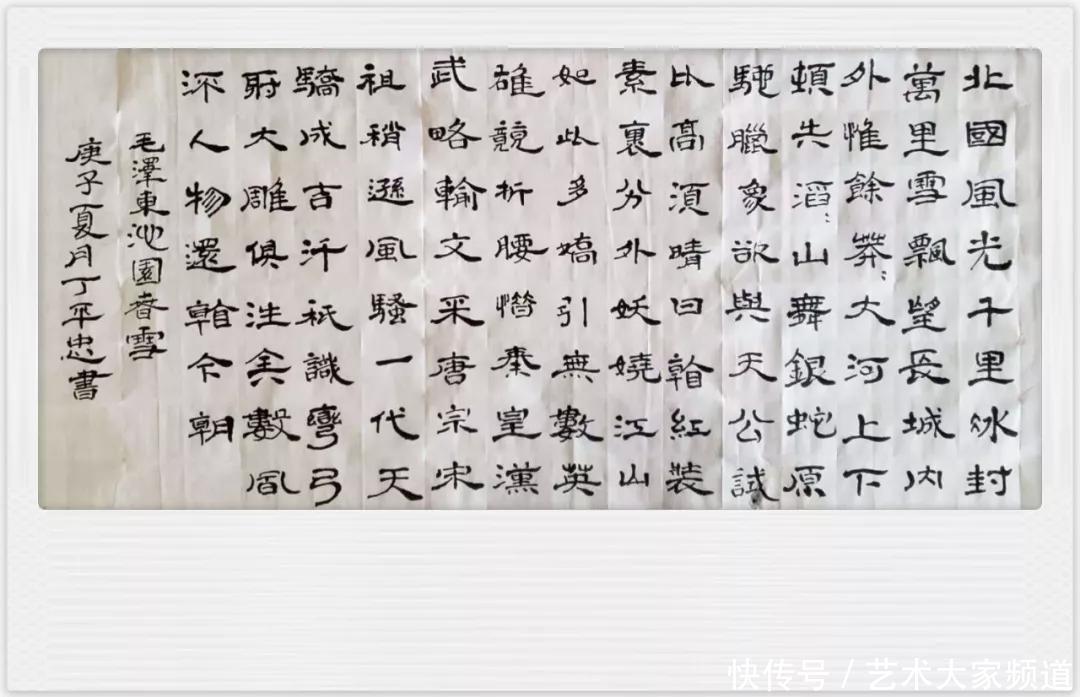 北國風光千里冰封
萬里雪飄望長城內
外惟餘莽:大河上下
頓失滔:山舞銀蛇原
馳臘象欲與天公試
比高須晴日看紅裝
素裹分外妖嬈江山
如此多嬌引無數英
雄競折腰惜秦皇漢
武略輸文采唐宗宋
祖稍遜風騷一代天
驕成吉汗祇識彎弓
射大雕俱往矣數風
流人物還看今朝
毛澤東沁園春雪
庚子夏月丁平忠書
快传号 / 艺术大家频道